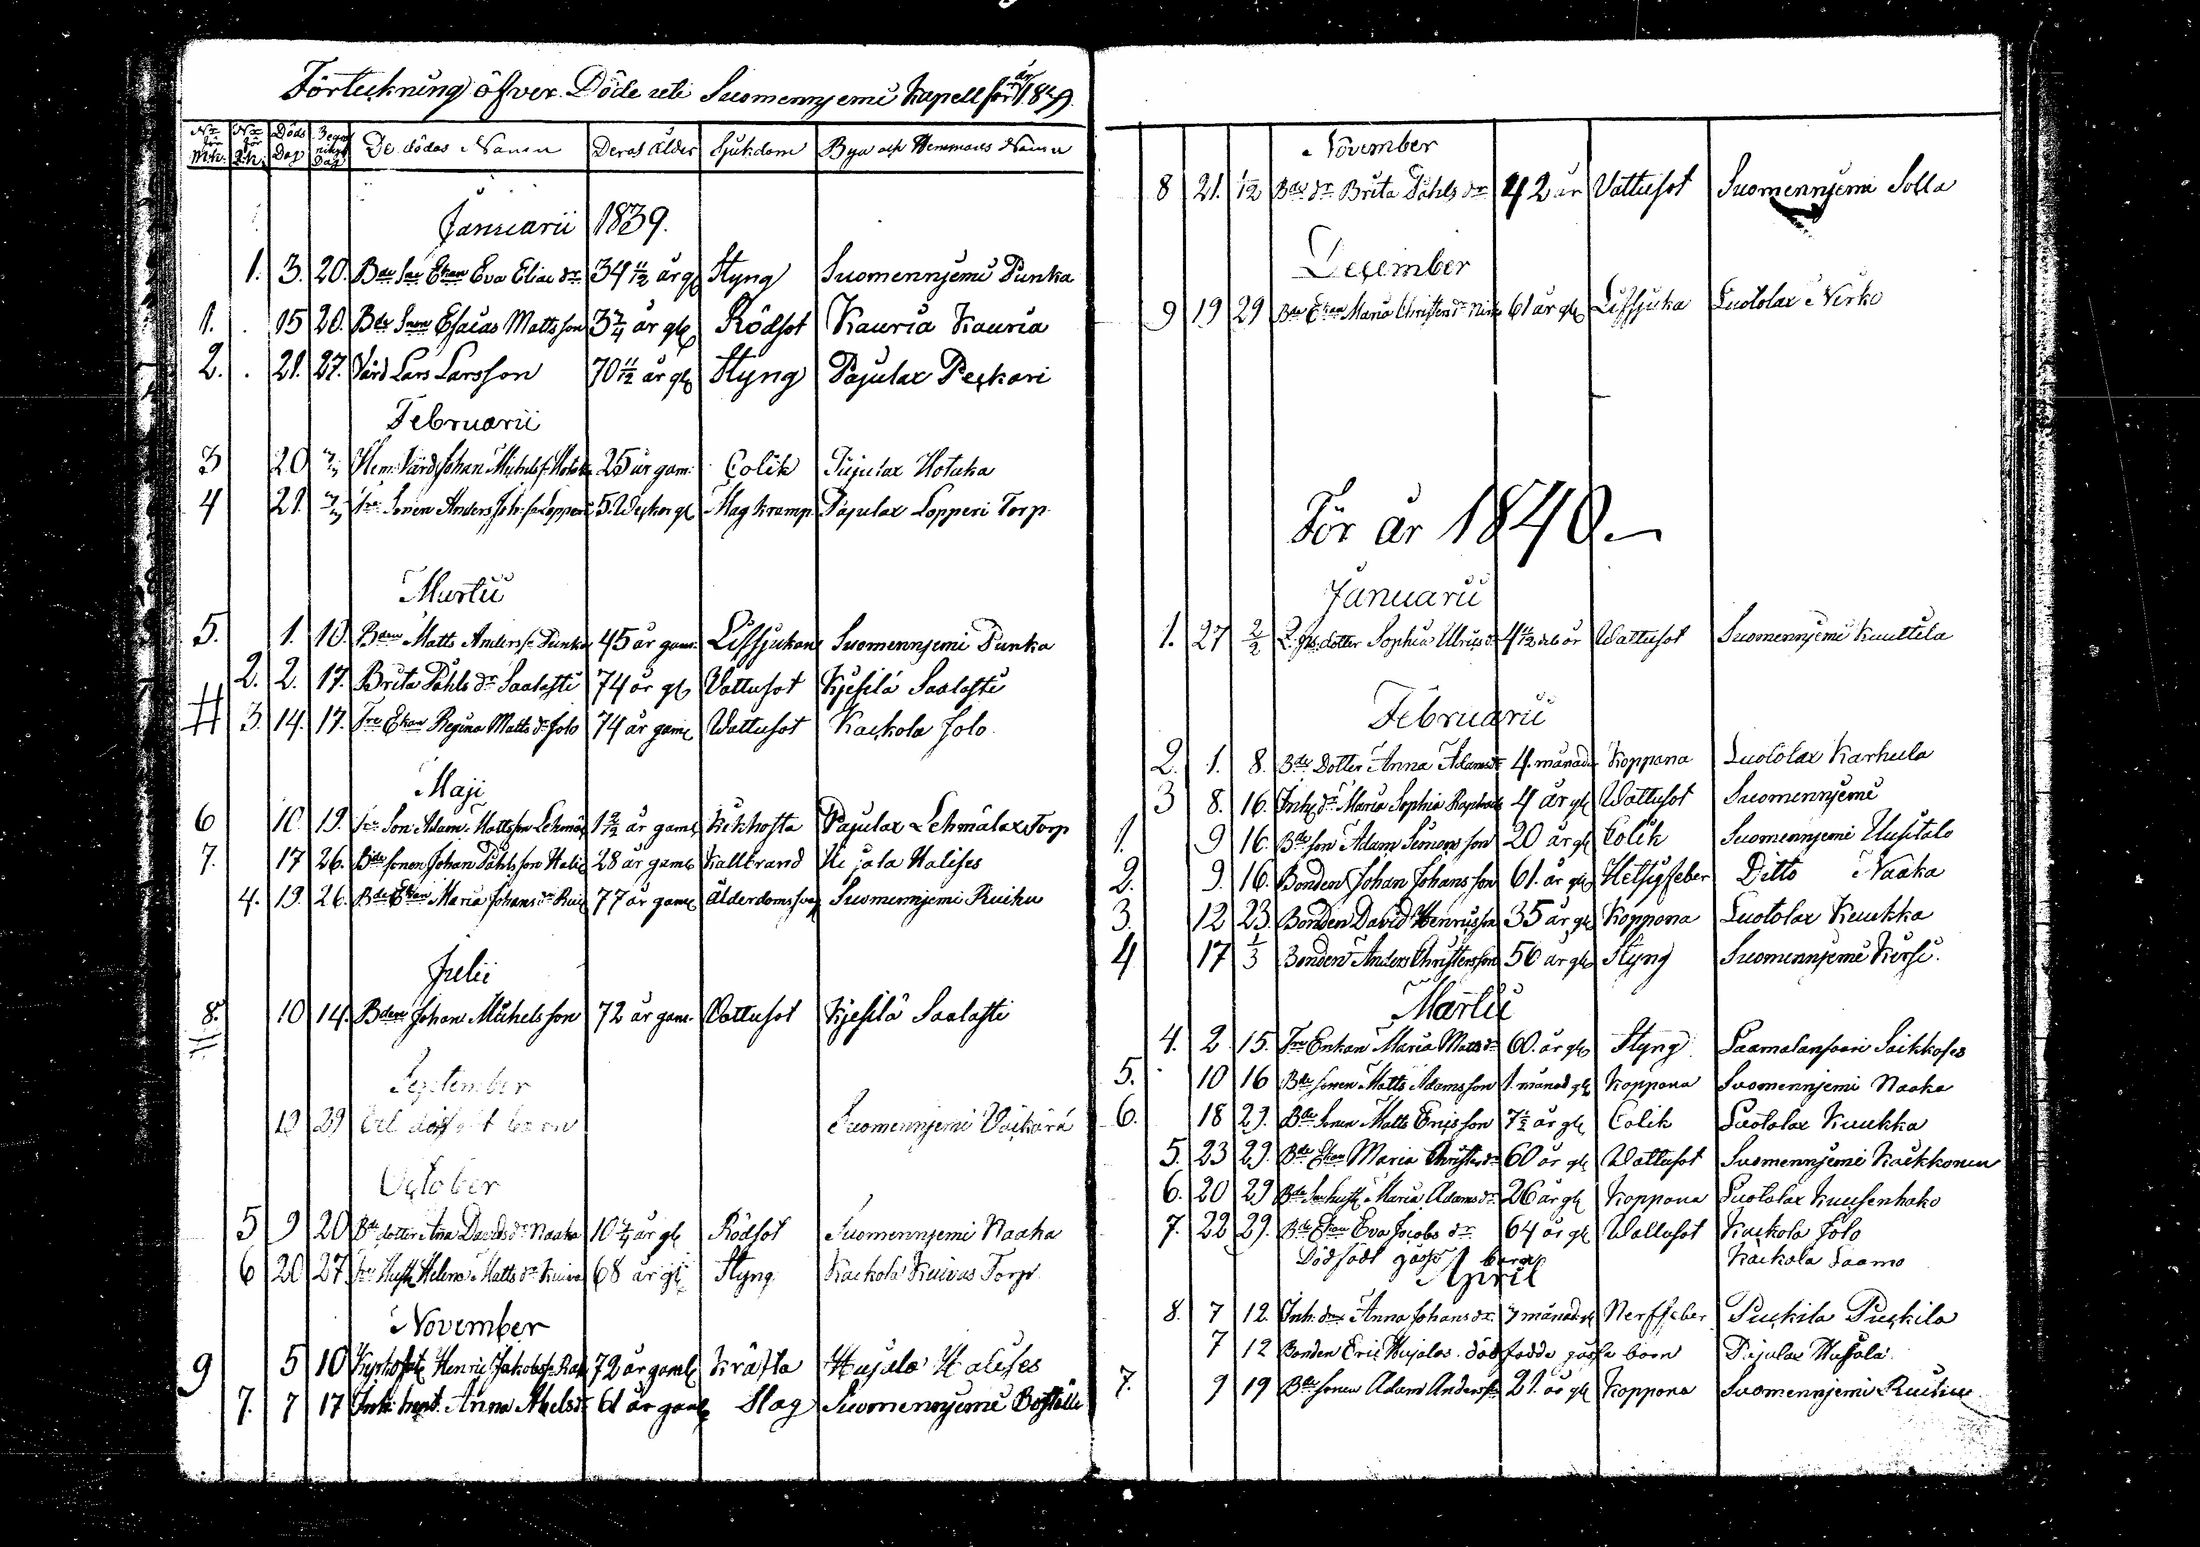 Förteckning öfver Döde uti Suomennjemi Kapell för år 1839.
No för M.k. No för Q.k. Döds Dag Begrafnings Dag De dödas Namn Deras ålder Sjukdom Bya och Hemmans Namn
Januarii 1839.
1. 3. 20. Bde Eva Elias dr 34 11/12 år gl Styng Suomennjemi Punka
1. 15 20. Bde Esaias Matts son 3 3/4 år gl Rödsot Kauria Kauria
2. 21. 27. Värd Lars Larsson 70 11/12 år gl Styng Pajulax Peckari
Februarii
3 20 Hem. Värd Johan Michels s. 25 år gam. Colik Pajulax Hotaka
4 21. Sonen Anders Joh. s. Lopperi 5. Veckor gl Mag kramp Pajulax Lopperi Torp
Martii
5. 1. 10. Bden Matts Anders s. Punka 45 år gam. Lifsjukan Suomennjemi Punka
2. 2. 17. Brita Påhls dr Saalasti 74 år gl Vattusot Kjesilä Saalasti
3. 14. 17. Enkan Regina Matts dr Jolo 74 år gaml Wattusot Kackola Jolo
Maji
6 10. 19. Son Adam Mattsson 1 2/12 år gaml kikhosta Pajulax Lehmälax Torp
7. 17 26. Bde sonen Johan Påhls son 28 år gaml kallbrand Hujala Halises
4. 19. 26. Bde Enkan Maria Johans dr 77 år gaml ålderdomssvag Suomennjemi Ruihu
Julii
8. 10 14. Bden Johan Michels son 72 år gam. Vattusot Kjesilä Saalasti
September
19 29 Ett dödfödt barn Suomennjemi Väikärä
October
5 9 20 Bde dotter Ana Davids dr Naaka 10 3/4 år gl Rödsot Suomennjemi Naaka
6 20 27 Helena Matts dr 68 år gl Styng Kackola Kuivas Torp
November
9 5 10 Henric Jakobs s. 72 år gaml kräfta Hujala Halises
7. 7 17 Inh. Anna Abels dr 61 år gaml Slag Suomennjemi Boställe
November
8 21. 1/12 Bde dr Brita Påhls dr 42 år Vattusot Suomennjemi Solla
December
9 19 29 Bde Enkan Maria Christers dr 61 år gl Lifsjuka Luotolax Nirko
För år 1840.
Januarii
1. 27 2/2 dotter Sophia Ulrics dr 4 11/12 år Wattusot Suomennjemi Kuuttila
Februarii
2. 1. 8. Bde Dotter Anna Adams dr 4. månad Koppona Luotolax Karhula
3 8. 16. Inh. dr Maria Sophia 4 år gl Wattusot Suomennjemi
1. 9 16. Bde son Adam Simons son 20 år gl Colik Suomennjemi Uusitalo
2. 9. 16. Bonden Johan Johans son 61. år gl Hetsigfeber Ditto Naaka
3. 12 23. Bonden David Henricsson 35 år gl Koppona Luotolax Kuukka
4 17 1/3 Bonden Anders Christersson 56 år gl Styng Suomennjemi Kirsi.
Martii
4. 2 15. Enkan Maria Matts dr 60. år gl Styng Saamalansaari Saikkoses
5. 10 16 Bde sonen Matts Adamsson 1. månad gl Koppona Suomennjemi Naaka
6. 18 29. Bde Sonen Matts Ericsson 7 1/2 år gl Colik Luotolax Kuukka
5. 23 29. Bde Enkan Maria Christers dr 60 år gl Wattusot Suomennjemi Kaikkonen
6. 20 29 Bde Maria Adams dr 26 år gl Koppona Luotolax Kuusenhako
7. 22 29. Bde Enkan Eva Jacobs dr 64 år gl Wattusot Kackola Jolo
Dödfödt gosse barn Kackola Saamo
April
8. 7 12 Inh. dr Anna Johans dr 7 månad gl Nerffeber Puckila Puckila
7 12 Bonden Eric Hujalas dödfödde gosse barn Pajulax Hujala
7. 9 19 Bde Sonen Adam Anders s. 21. år gl Koppona Suomennjemi